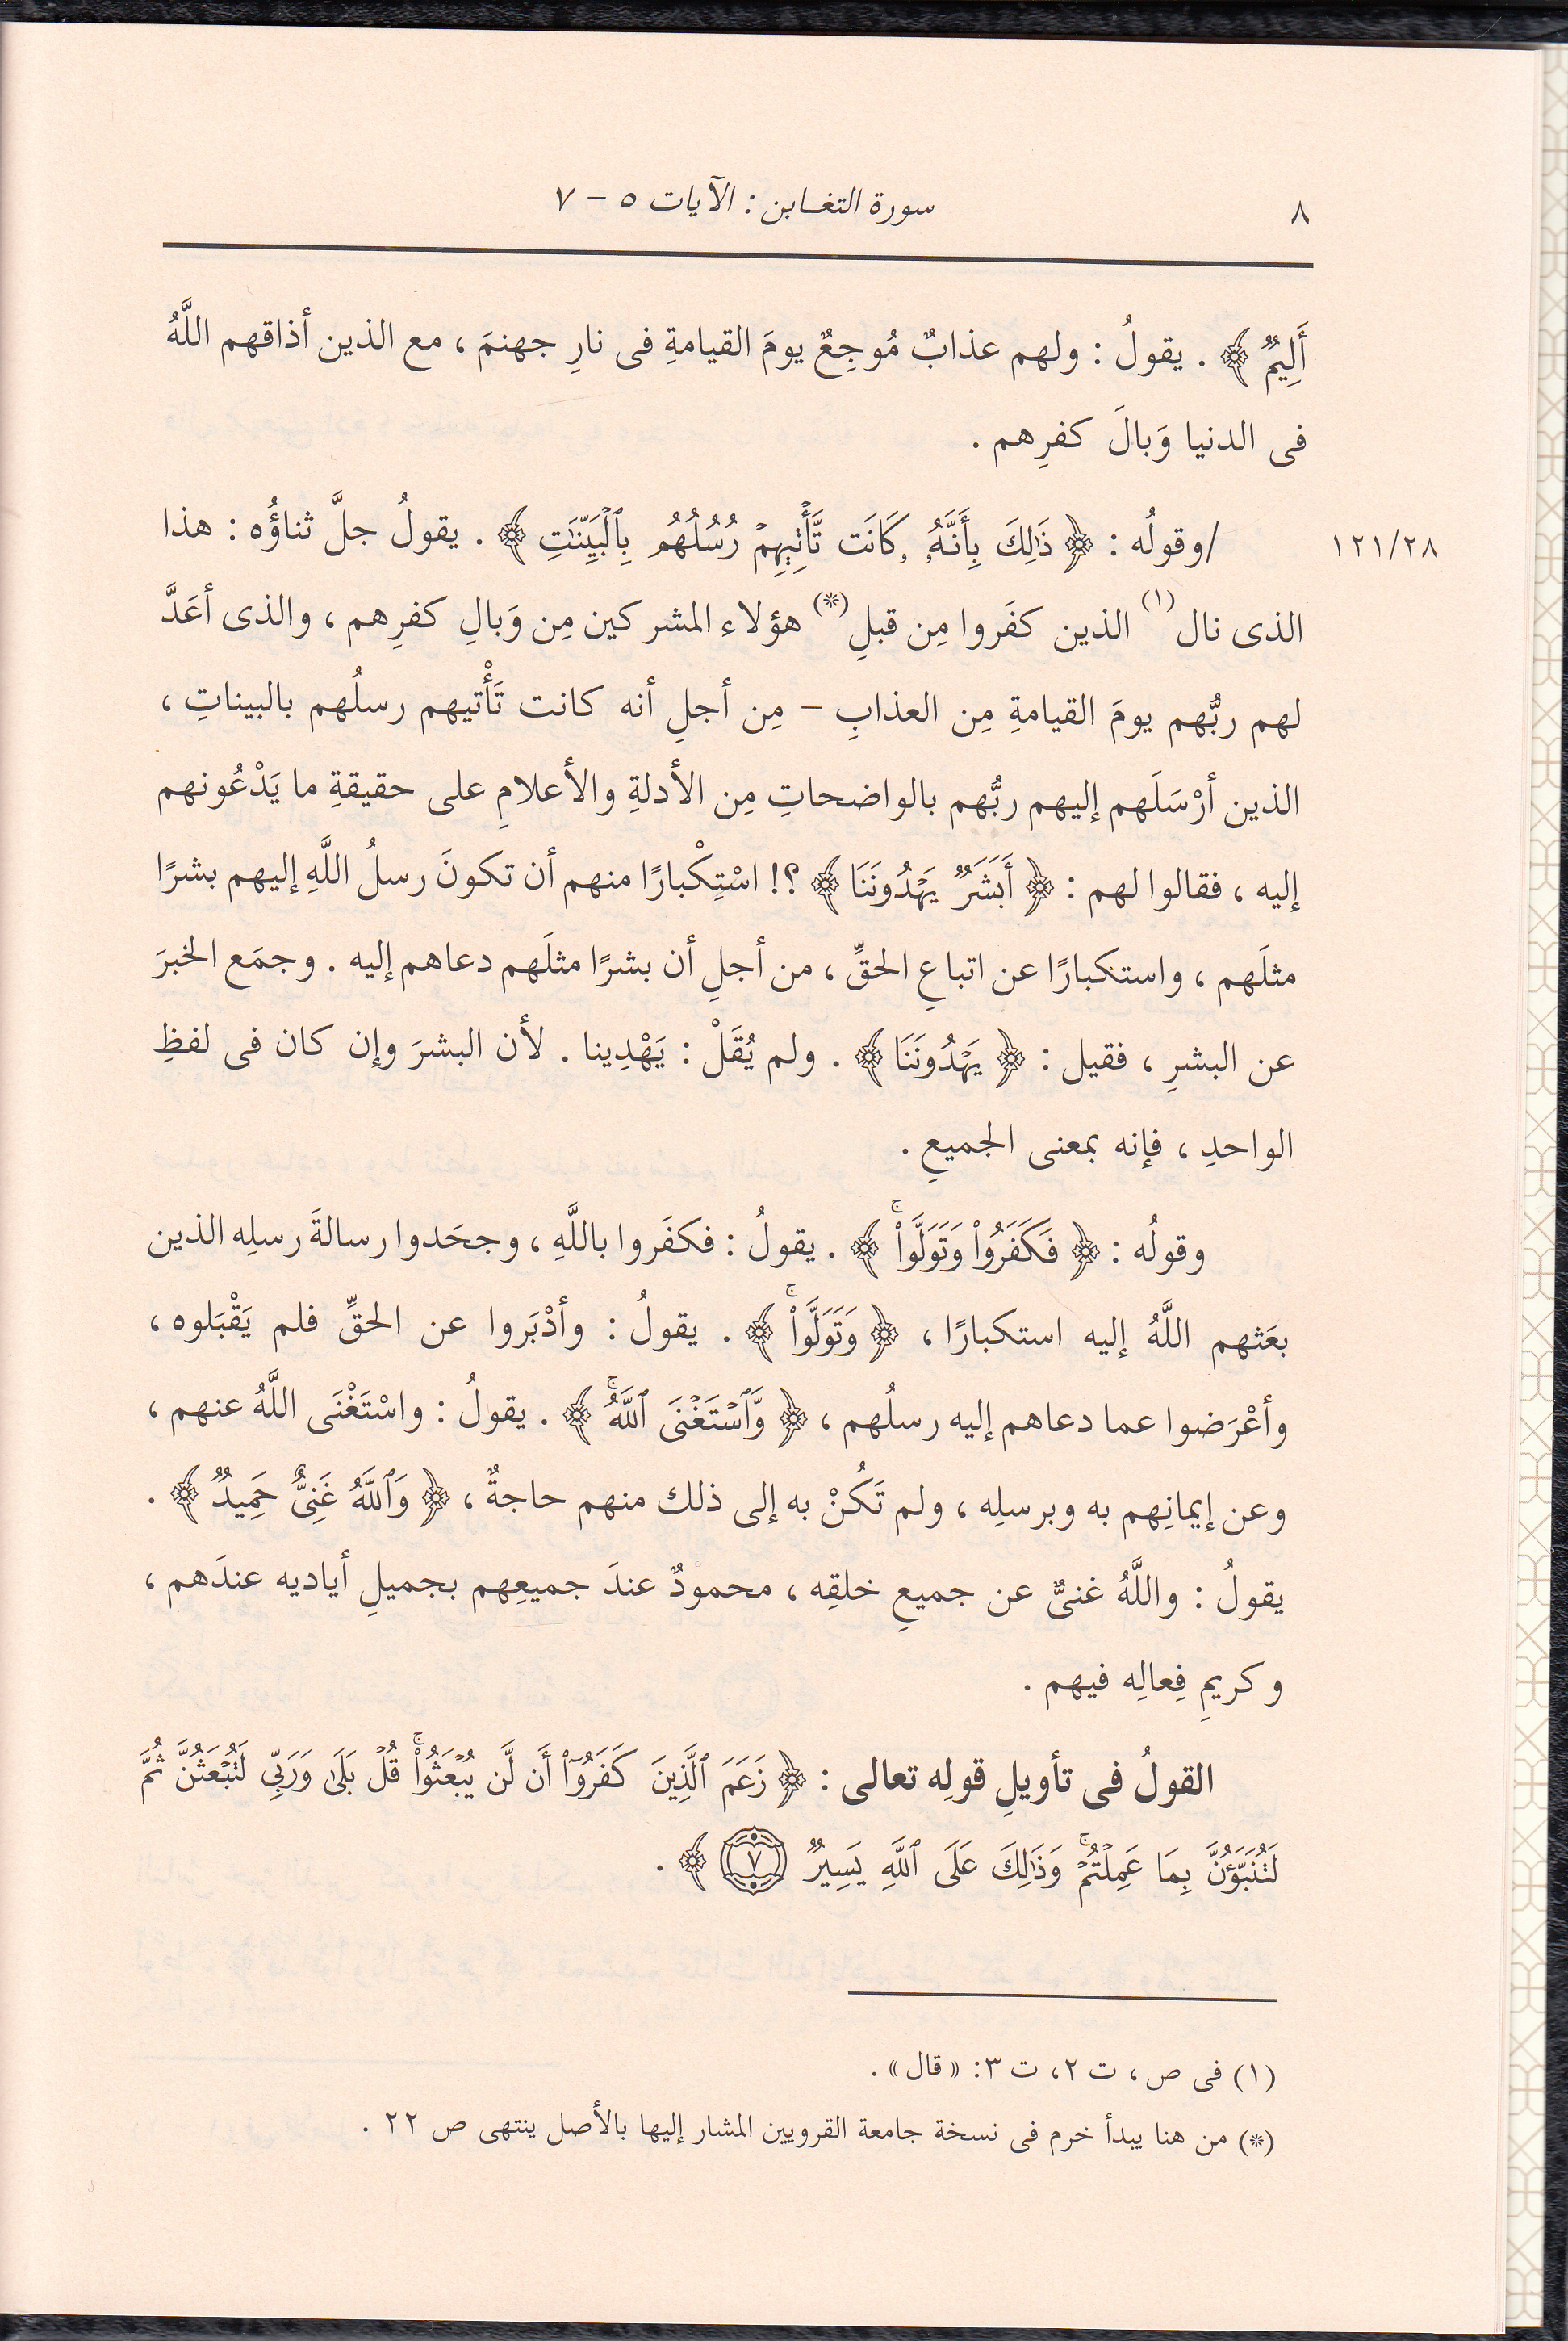 ٨
سورة التغابن : الآيات ٥ - ٧
أَلِيمٌ ﴾ . يقولُ : ولهم عذابٌ مُوجِعٌ يومَ القيامةِ فى نارِ جهنمَ ، مع الذين أذاقهم اللَّهُ
فى الدنيا وَبالَ كفرِهم .
١٢١/٢٨
/وقولُه : ﴿ ذَٰلِكَ بِأَنَّهُۥ كَانَت تَّأْتِيهِمْ رُسُلُهُم بِٱلْبَيِّنَٰتِ ﴾ . يقولُ جلَّ ثناؤُه : هذا
الذى نال(١) الذين كفَروا مِن قبلِ(*) هؤلاء المشركين مِن وَبالِ كفرِهم ، والذى أعَدَّ
لهم ربُّهم يومَ القيامةِ مِن العذابِ – مِن أجلِ أنه كانت تَأْتيهم رسلُهم بالبيناتِ ،
الذين أرْسَلَهم إليهم ربُّهم بالواضحاتِ مِن الأدلةِ والأعلامِ على حقيقةِ ما يَدْعُونهم
إليه ، فقالوا لهم : ﴿ أَبَشَرٌ يَهْدُونَنَا ﴾ ؟! اسْتِكْبارًا منهم أن تكونَ رسلُ اللَّهِ إليهم بشرًا
مثلَهم ، واستكبارًا عن اتباعِ الحقِّ ، من أجلِ أن بشرًا مثلَهم دعاهم إليه . وجمَع الخبرَ
عن البشرِ ، فقيل : ﴿ يَهْدُونَنَا ﴾ . ولم يُقَلْ : يَهْدِينا . لأن البشرَ وإن كان فى لفظِ
الواحدِ ، فإنه بمعنى الجميعِ .
وقولُه : ﴿ فَكَفَرُوا۟ وَتَوَلَّوا۟ۚ ﴾ . يقولُ : فكفَروا باللَّهِ ، وجحَدوا رسالةَ رسلِه الذين
بعَثهم اللَّهُ إليه استكبارًا ، ﴿ وَتَوَلَّوا۟ۚ ﴾ . يقولُ : وأدْبَروا عن الحقِّ فلم يَقْبَلوه ،
وأعْرَضوا عما دعاهم إليه رسلُهم ، ﴿ وَّٱسْتَغْنَى ٱللَّهُۚ ﴾ . يقولُ : واسْتَغْنَى اللَّهُ عنهم ،
وعن إيمانِهم به وبرسلِه ، ولم تَكُنْ به إلى ذلك منهم حاجةٌ ، ﴿ وَٱللَّهُ غَنِىٌّ حَمِيدٌ ﴾ .
يقولُ : واللَّهُ غنىٌّ عن جميعِ خلقِه ، محمودٌ عندَ جميعِهم بجميلِ أياديه عندَهم ،
وكريمِ فِعالِه فيهم .
القولُ فى تأويلِ قولِه تعالى : ﴿ زَعَمَ ٱلَّذِينَ كَفَرُوٓا۟ أَن لَّن يُبْعَثُوا۟ۚ قُلْ بَلَىٰ وَرَبِّى لَتُبْعَثُنَّ ثُمَّ
لَتُنَبَّؤُنَّ بِمَا عَمِلْتُمْۚ وَذَٰلِكَ عَلَى ٱللَّهِ يَسِيرٌ ٧ ﴾ .
(١) فى ص، ت ٢، ت ٣: « قال » .
(*) من هنا يبدأ خرم فى نسخة جامعة القرويين المشار إليها بالأصل ينتهى ص ٢٢ .